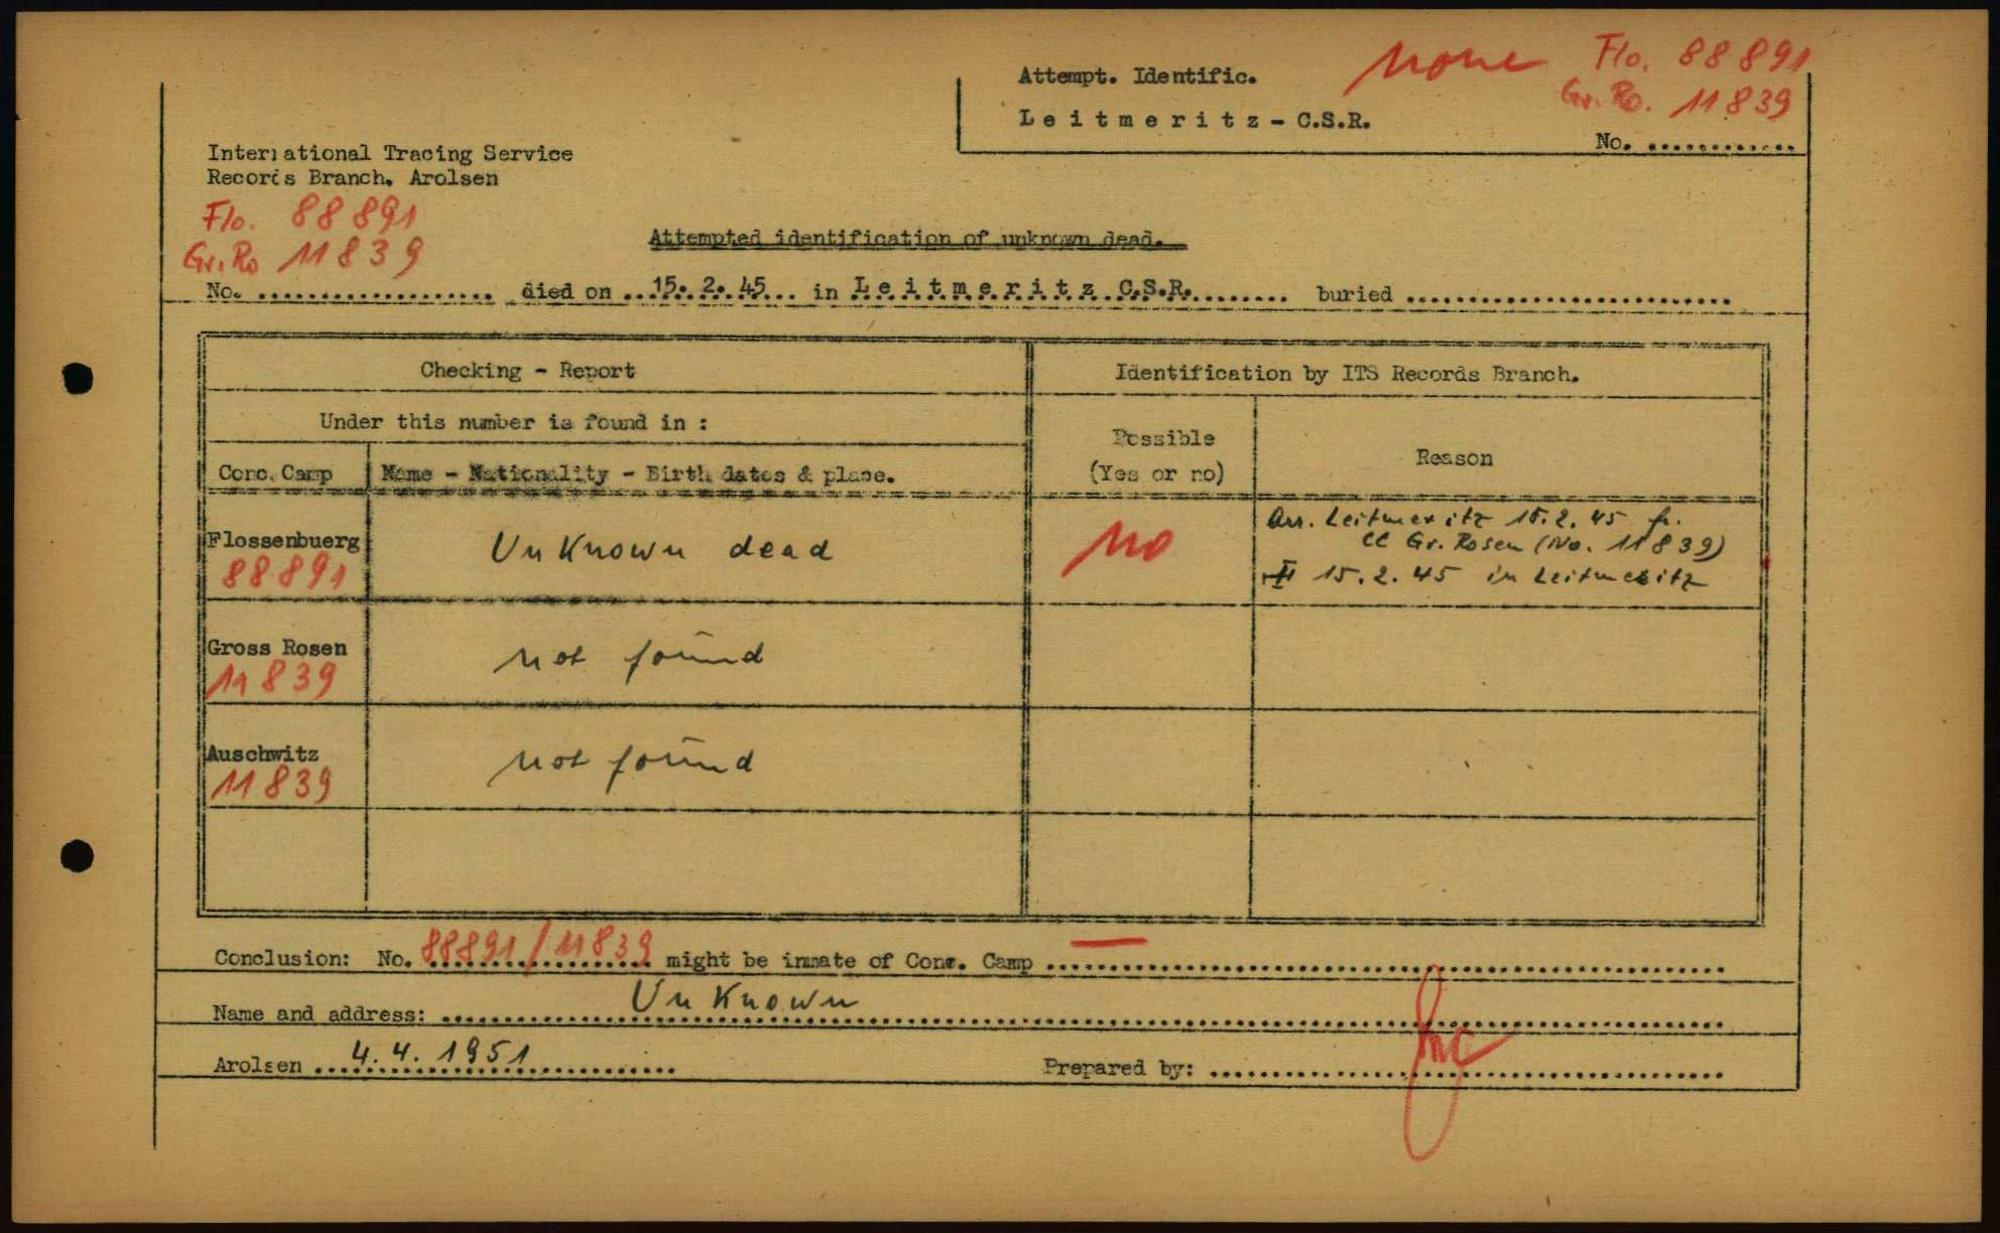 Attempt. Identific. none Flo. 88891
Gr. Ro. 11839
Leitmeritz - C.S.R.
No. ............
International Tracing Service
Records Branch, Arolsen
Flo. 88891
Gr. Ro 11839
Attempted identification of unknown dead.
No. .................. died on ...15. 2. 45... in Leitmeritz C.S.R. ........ buried .........................
Checking - Report
Identification by ITS Records Branch.
Under this number is found in :
Possible
(Yes or no)
Reason
Conc. Camp
Name - Nationality - Birth dates & place.
Flossenbuerg
88891
Unknown dead
no
Arr. Leitmeritz 15.2.45 fr.
CC Gr. Rosen (No. 11839)
15.2.45 in Leitmeritz
Gross Rosen
11839
not found
Auschwitz
11839
not found
Conclusion: No. 88891/11839 might be inmate of Conc. Camp — ..........
Name and address: Unknown
Arolsen 4.4.1951
Prepared by: ..........